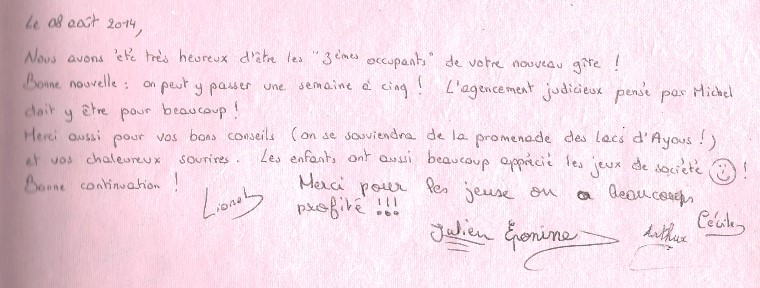 Le 08 août 2014,
Nous avons été très heureux d'être les "3èmes occupants" de votre nouveau gîte !
Bonne nouvelle : on peut y passer une semaine à cinq ! L'agencement judicieux pensé par Michel
doit y être pour beaucoup !
Merci aussi pour vos bons conseils (on se souviendra de la promenade des lacs d'Ayous !)
et vos chaleureux sourires. Les enfants ont aussi beaucoup apprécié les jeux de société ☺ !
Bonne continuation !
Lionel
Merci pour les jeuse on a beaucoups
profité !!!
Julien Éponine Arthur Cécile